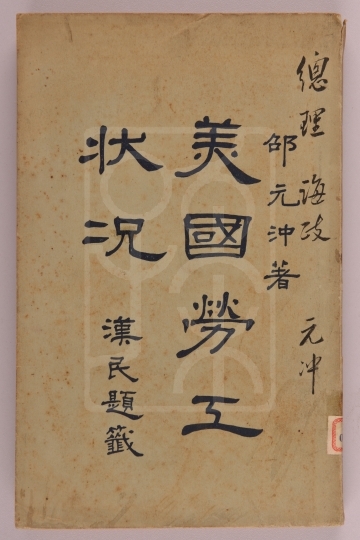 總理 誨政 元冲
邵元沖著
美國勞工
狀况
漢民題籤